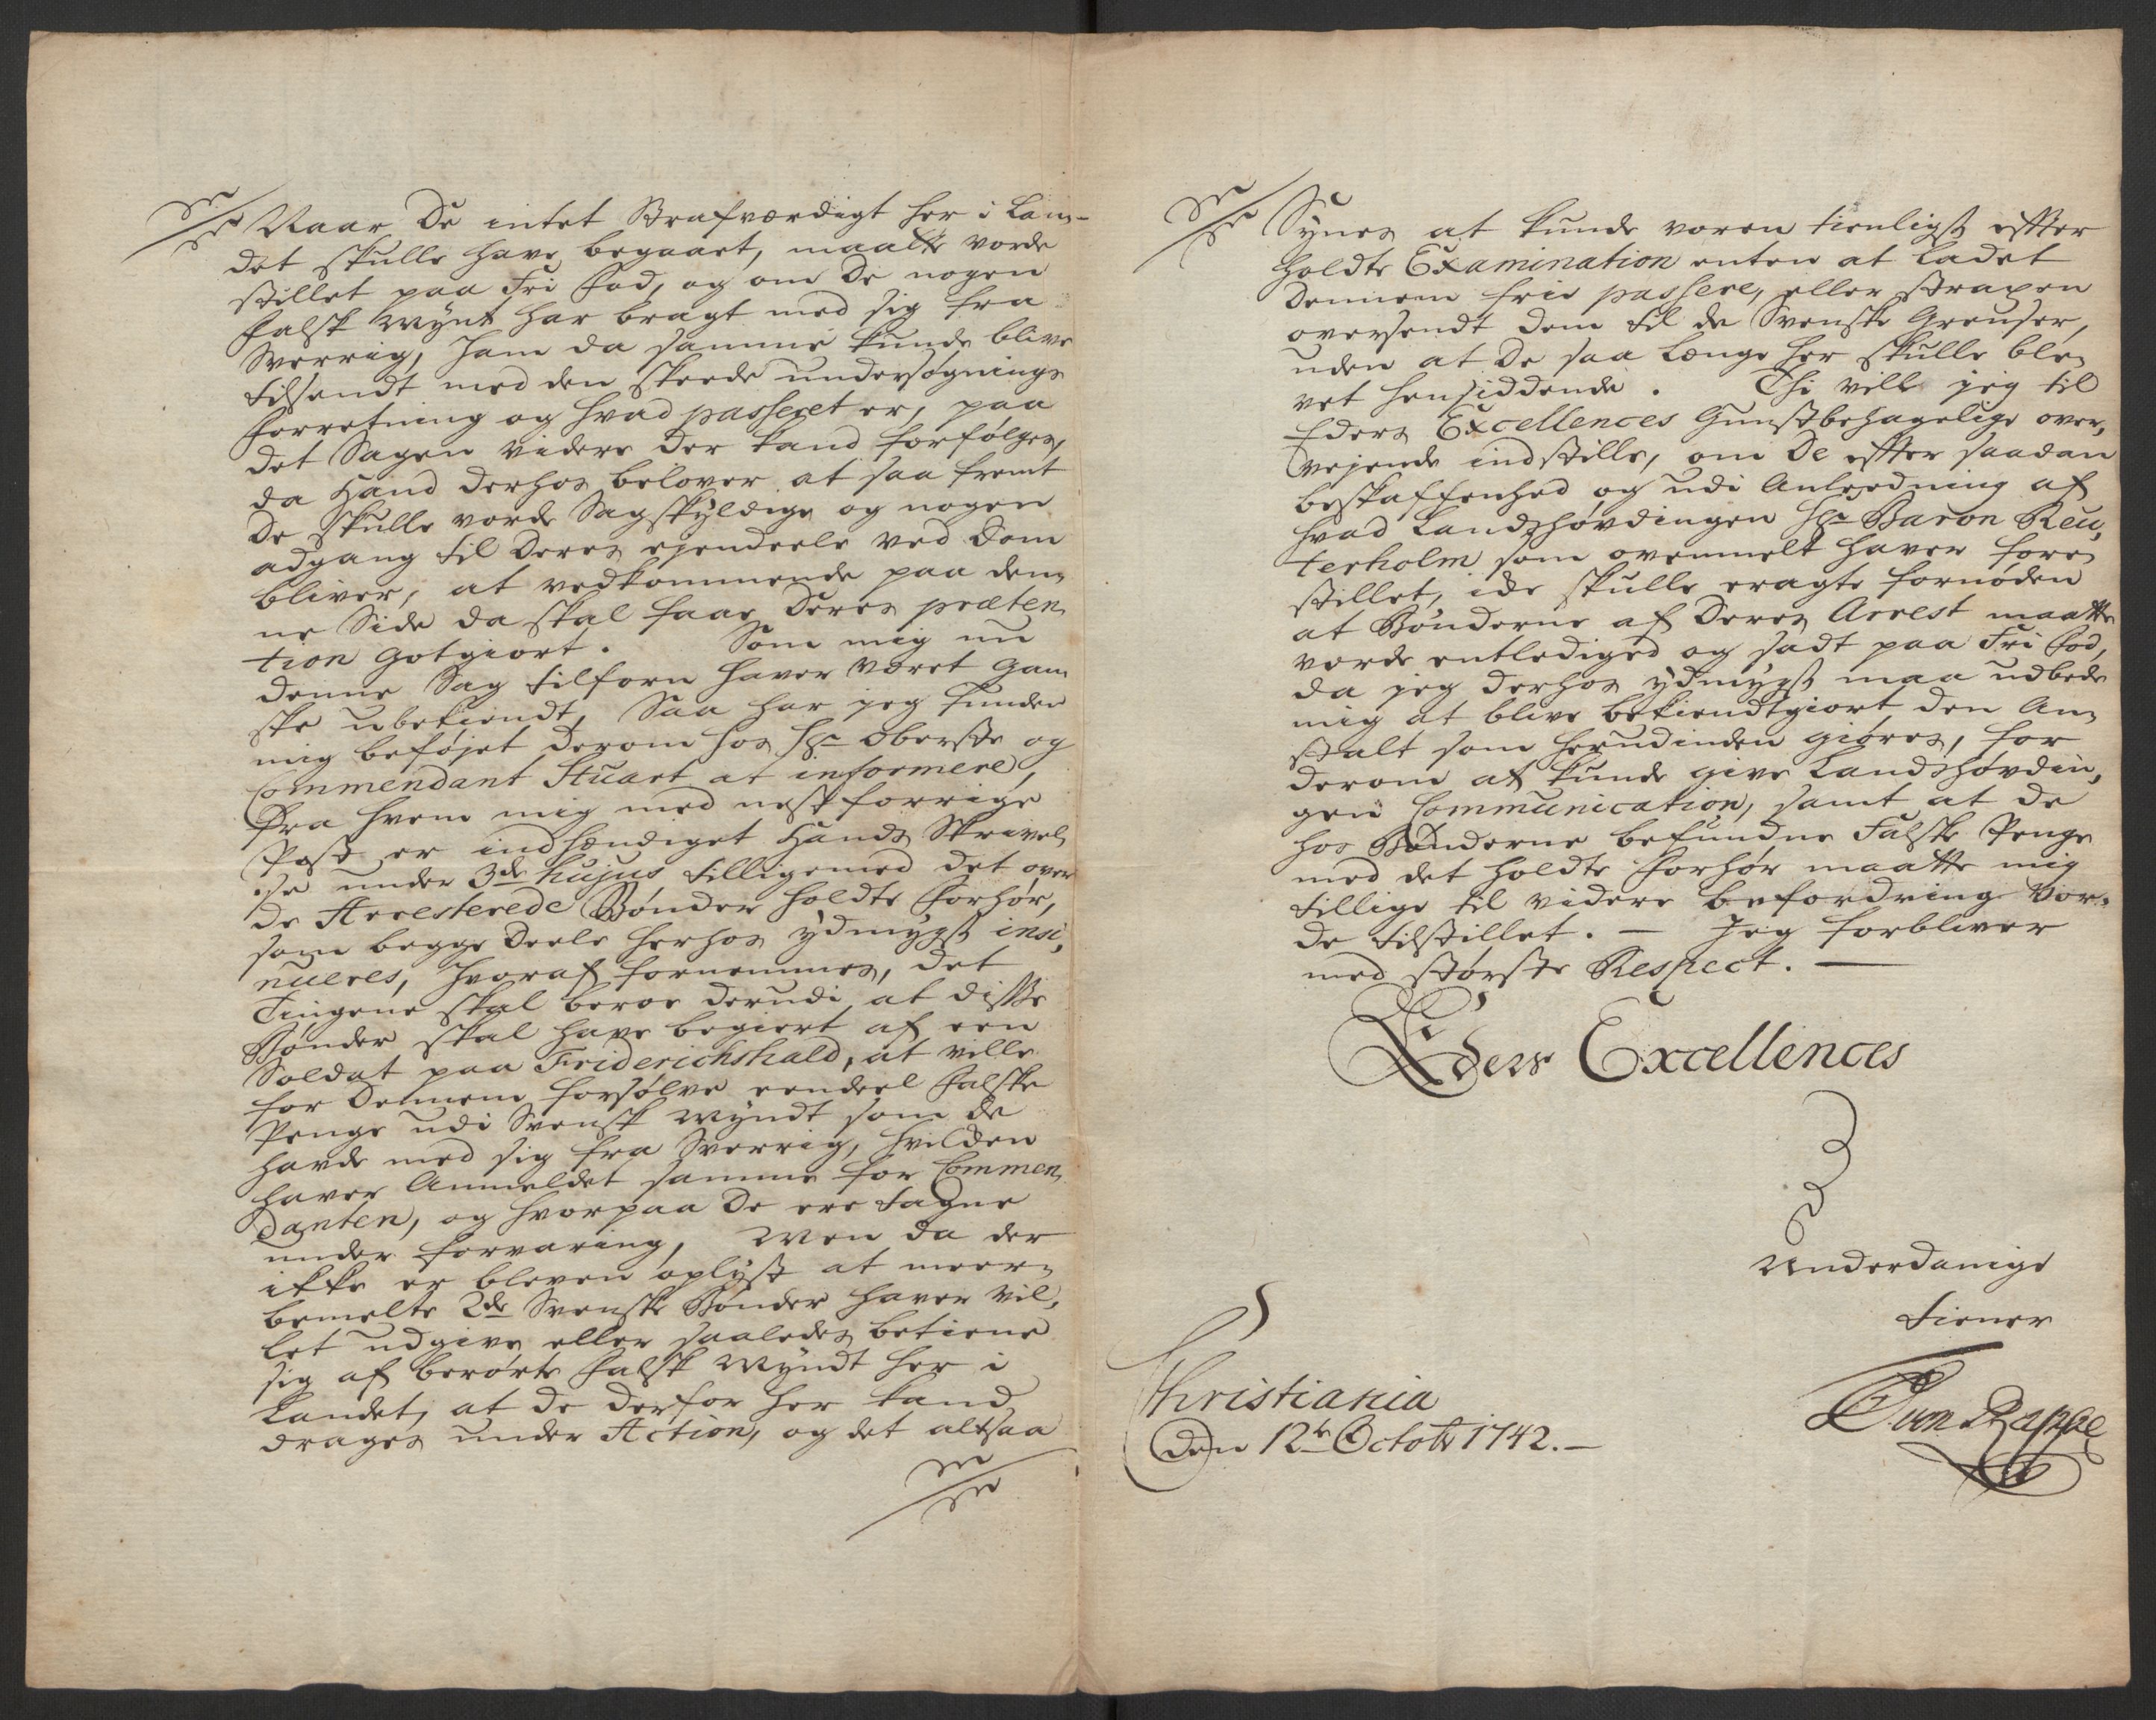 Naar De intet Strafværdigt her i Lan-
det skulle have begaaet, maatte vorde
stillet paa Fri Fod, og om De nogen
falsk Mynt har bragt med sig fra
Sverrig, Ham da samme kunde blive
tilsendt med den skeede undersøgnings
forretning og hvad passeret er, paa
det Sagen videre der kand forfølges,
da Hand derhos belover at saa fremt
De skulle vorde Sagskyldige og nogen
adgang til Deres ejendeele ved Dom
bliver, at vedkommende paa den,
ne Side da skal faae Deres præten,
tion gotgiort. Som mig nu
denne Sag tilforn haver været gan,
ske ubekiendt, Saa har jeg funden
mig beføjet derom hos Hr Oberste og
Commendant Stuart at informere,
fra hvem mig med nestforrige
Post er indhændiget Hands Skrivel,
se under 3de hujus tilligemed det over
de Arresterede Bønder holdte Forhør,
som begge Deele herhos ydmygst insi,
nueres, hvoraf fornemmes, det
Tingene skal beroe derudi at disse
Bønder skal have begiert af een
Soldat paa Friderichshald, at ville
for Dennem forsølve eendeel falske
Penge udi Svensk Myndt som de
havde med sig fra Sverrig, hvilden
haver Anmeldet samme for Commen,
danten, og hvorpaa De ere tagne
under forvaring, Men da der
ikke er bleven oplyst at meer,
bemelte 2de Svenske Bønder haver vil,
let udgive eller saaledes betiene
sig af berørte falsk Myndt her i
Landet, at de derfor her kand
drages under Action, og det altsaa
Synes at kunde voren tienligst efter
holdte Examination enten at ladet
Dennem frie passere, eller straxen
oversendt dem til de Svenske Grenser,
uden at De saa længe her skulle ble,
vet hensiddende. Thi vill jeg til
Eders Excellences Gunstbehagelige over,
vejende indstille, om De efter saadan
beskaffenhed og udi Anleedning af
hvad Landshøvdingen Hr Baron Reu,
terholm som ovenmelt haver fore,
stillet, icke skulle eragte fornøden
at Bønderne af Deres Arrest maatte
vorde entlediged og sadt paa Fri Fod,
da jeg derhos ydmygst maa udbede
mig at blive bekiendtgiort den An,
stalt som herudinden giøres, for
derom at kunde give Landshøvdin,
gen Communication, samt at de
hos Bønderne befundne Falske Penge
med det holdte Forhør maatte mig
tillige til videre befordring vor,
de tilstillet. — Jeg forbliver
med største Respect. —
Eders Excellences
Underdanige
tiener
Christiania
den 12te Octobr 1742. —